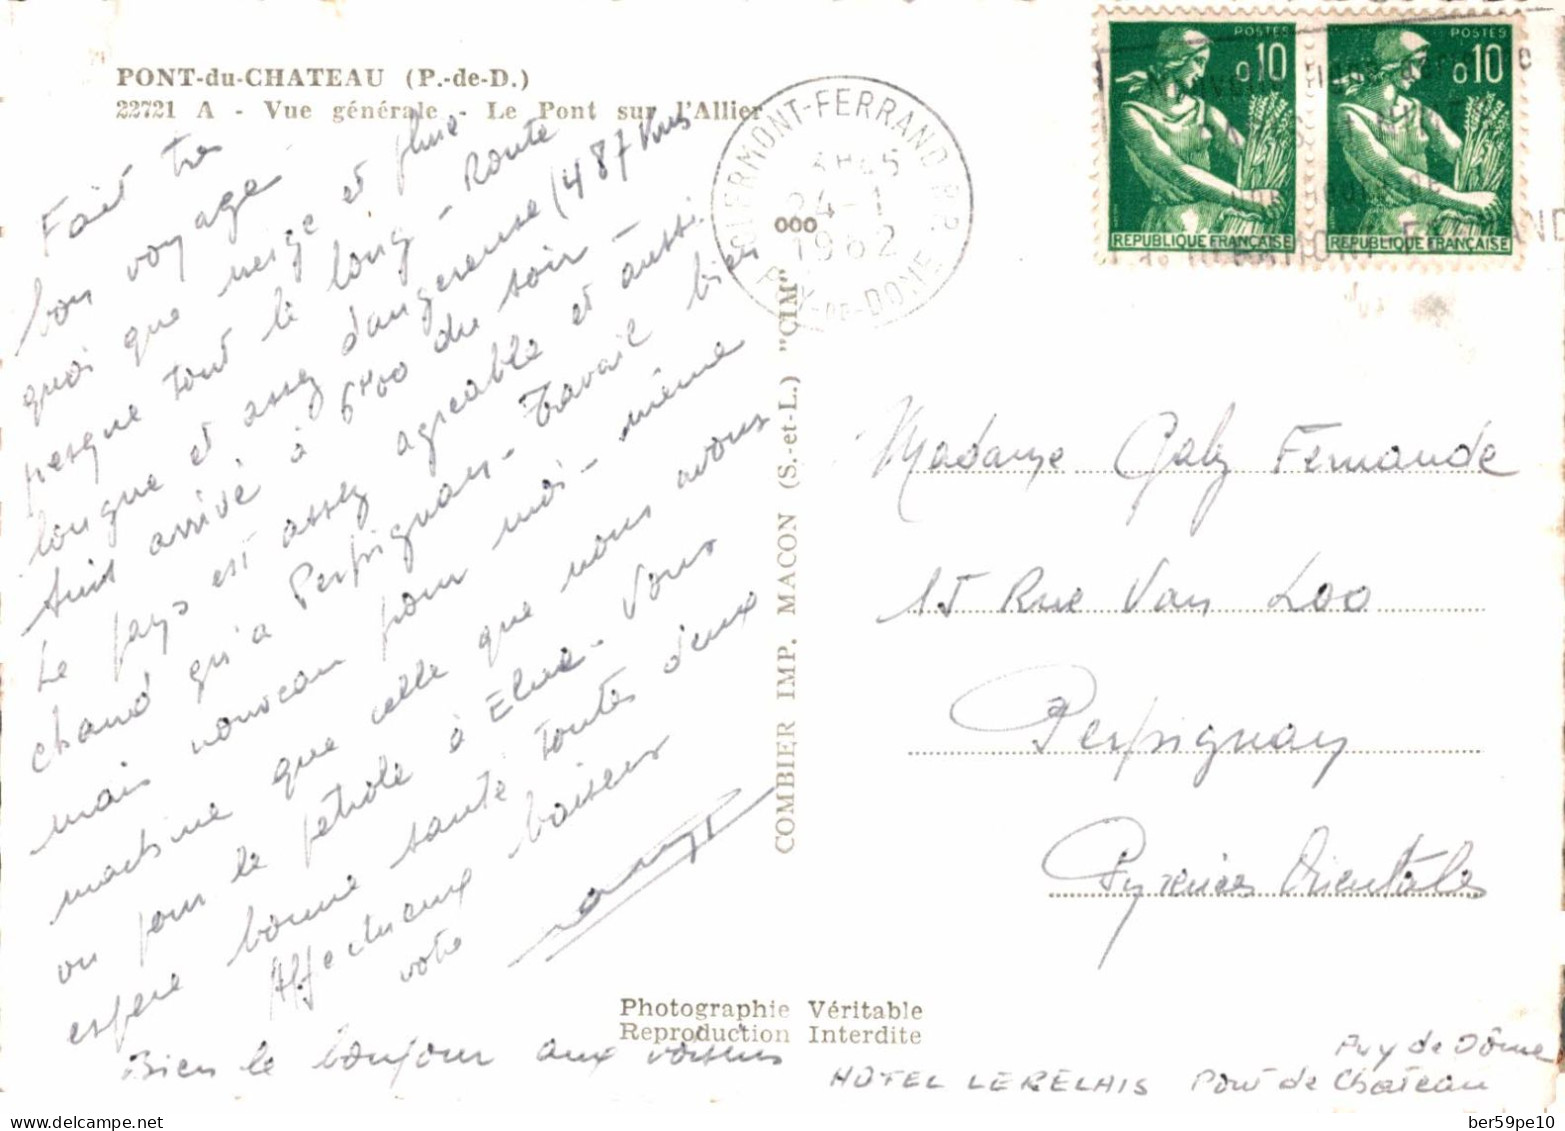 PONT-du-CHATEAU (P.-de-D.)
22721 A - Vue générale - Le Pont sur l'Allier
Fait tres
bon voyage
quoi que neige et pluie
presque tout le long - Route
longue et assez dangereuse (487 Kms
Suis arrivé à 6H00 du soir -
Le pays est assez agreable et aussi
chaud qu'a Perpignan - Travail bien
mais nouveau pour moi - même
machine que celle que nous avons
eu pour le petrole à Elne - Vous
espere bonne santé toutes deux
Affectueux baisers
votre
Bien le bonjour aux voisins
CLERMONT-FERRAND R.P.
24-1
1962
PUY-DE-DOME
ooo
COMBIER IMP. MACON (S.-et-L.) "CIM"
POSTES
0,10
REPUBLIQUE FRANÇAISE
POSTES
0,10
REPUBLIQUE FRANÇAISE
Madame Galy Fernande
15 Rue Van Loo
Perpignan
Pyrénées Orientales
Photographie Véritable
Reproduction Interdite
HOTEL LE RELAIS Pont de Chateau
Puy de Dôme
ber59pe10